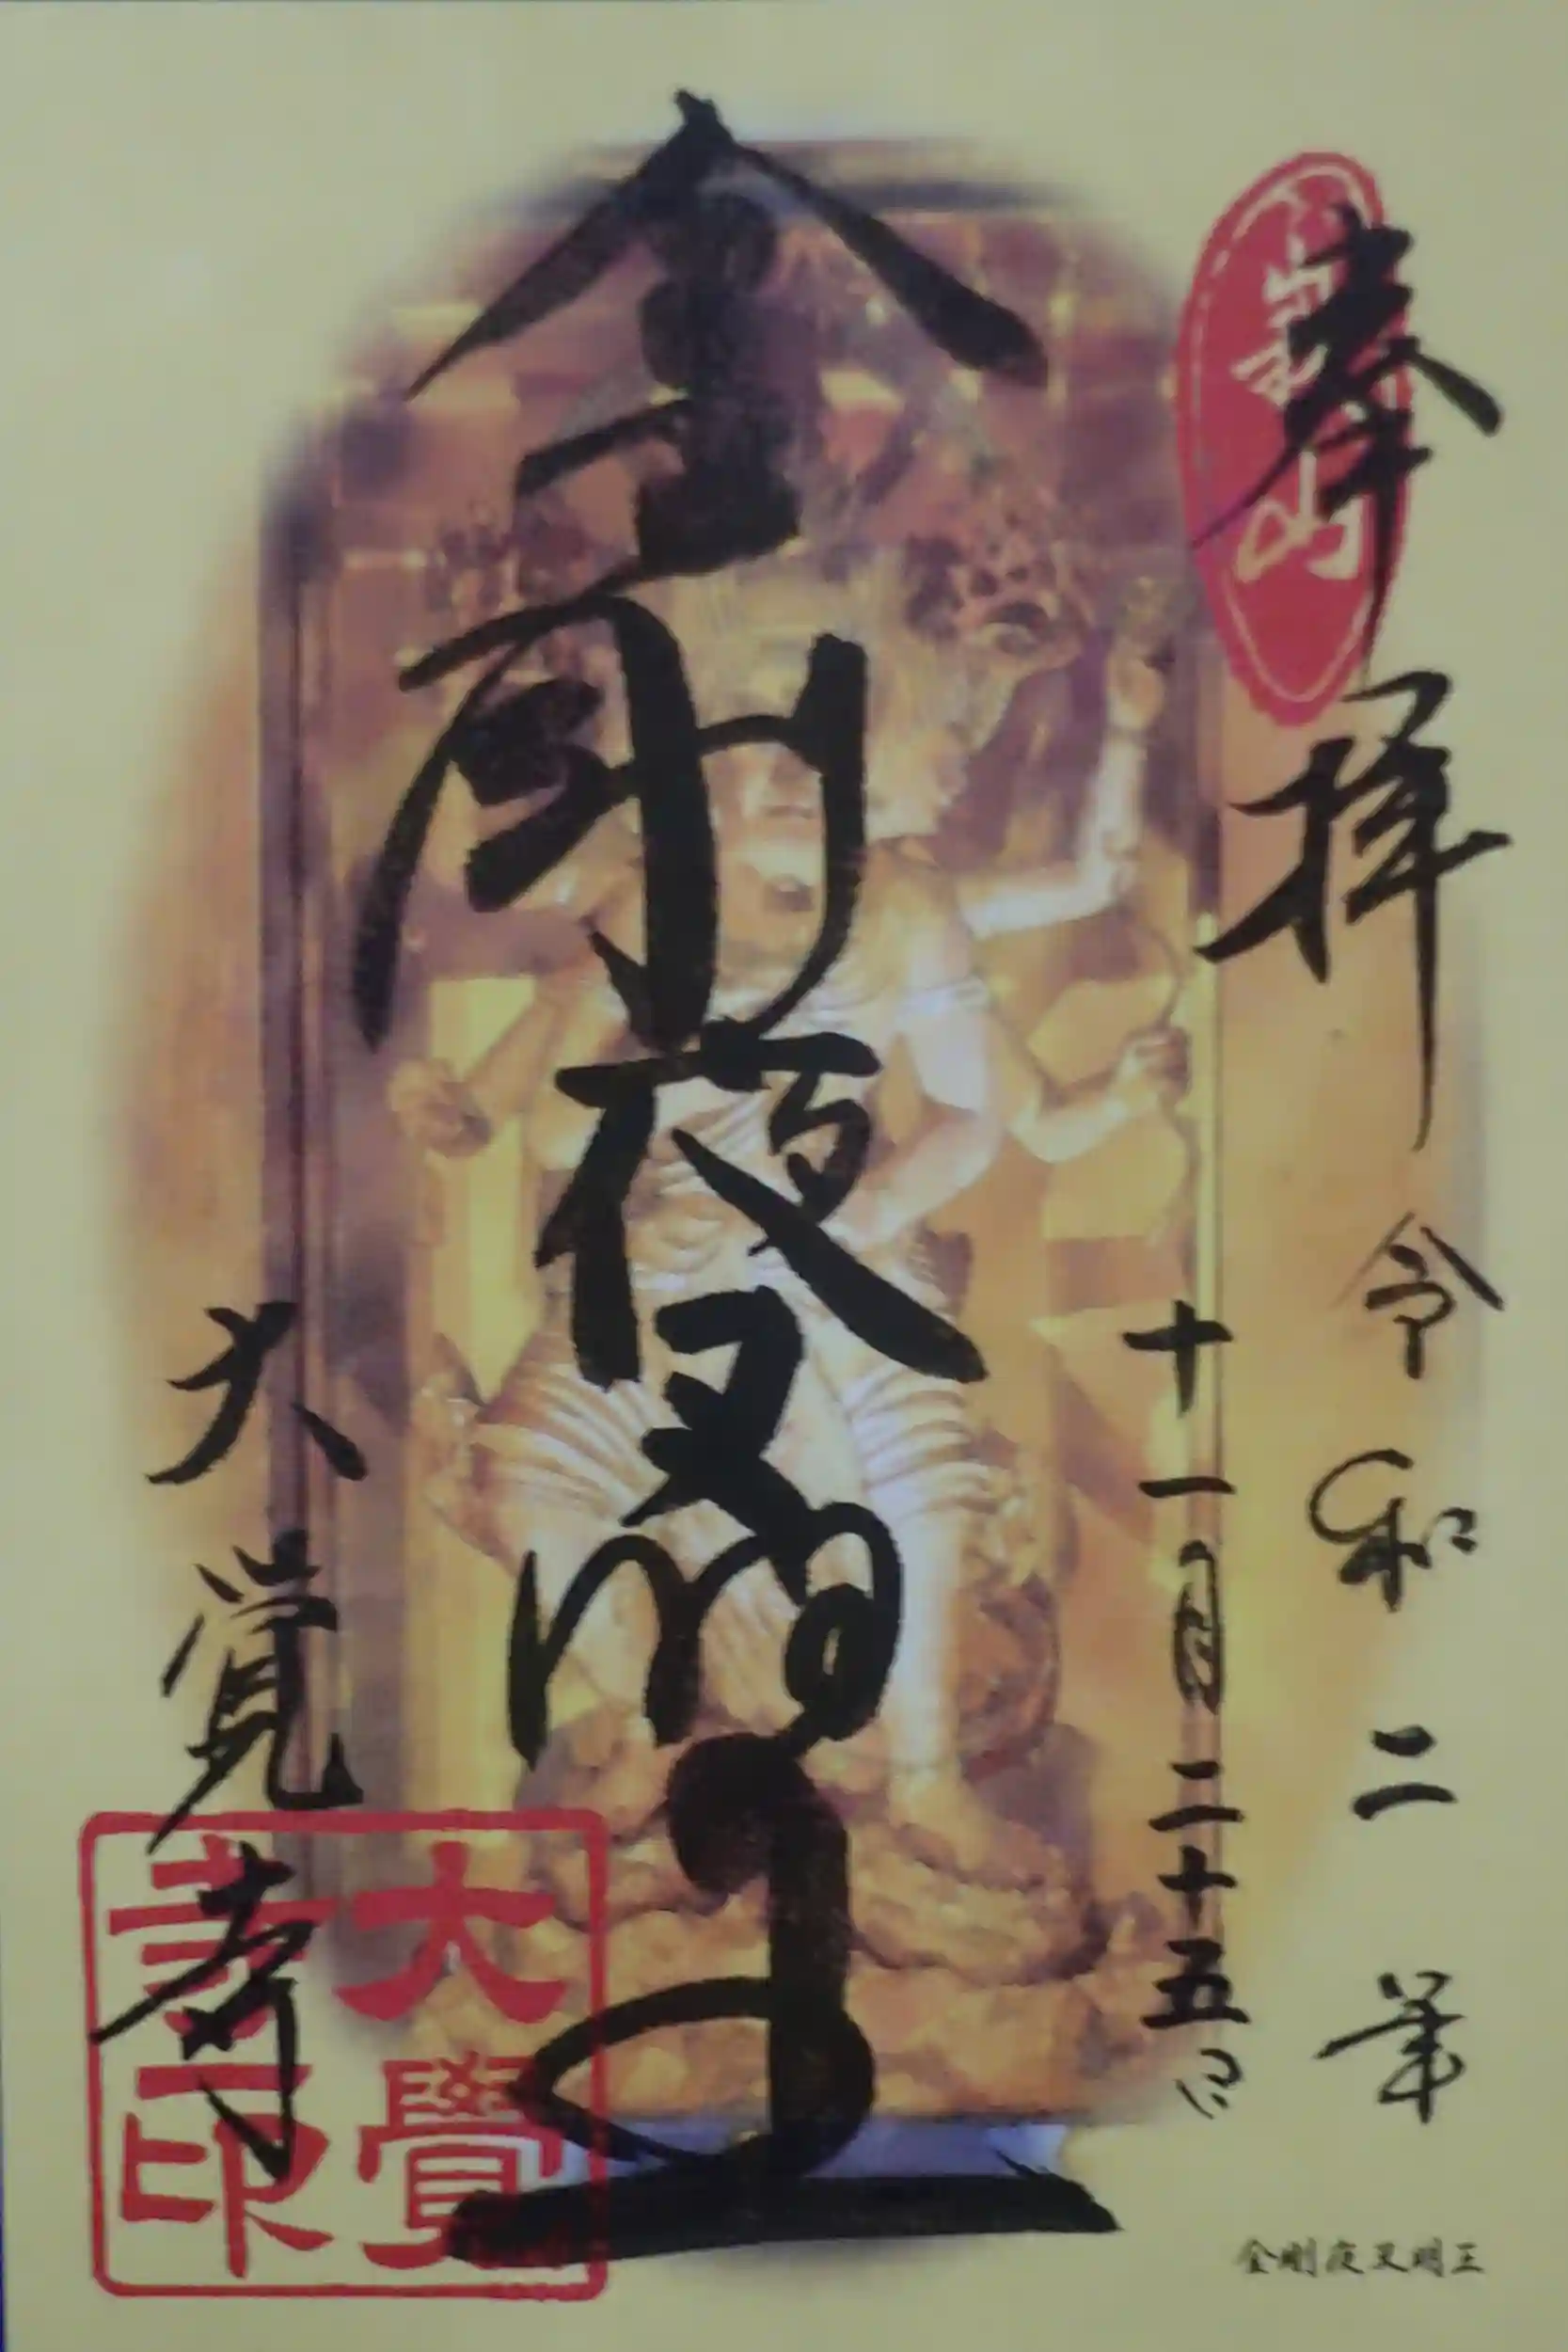 奉拝
令和二年
十一月二十五日
金剛夜叉明王
大覚寺
大覺寺印
金剛夜叉明王